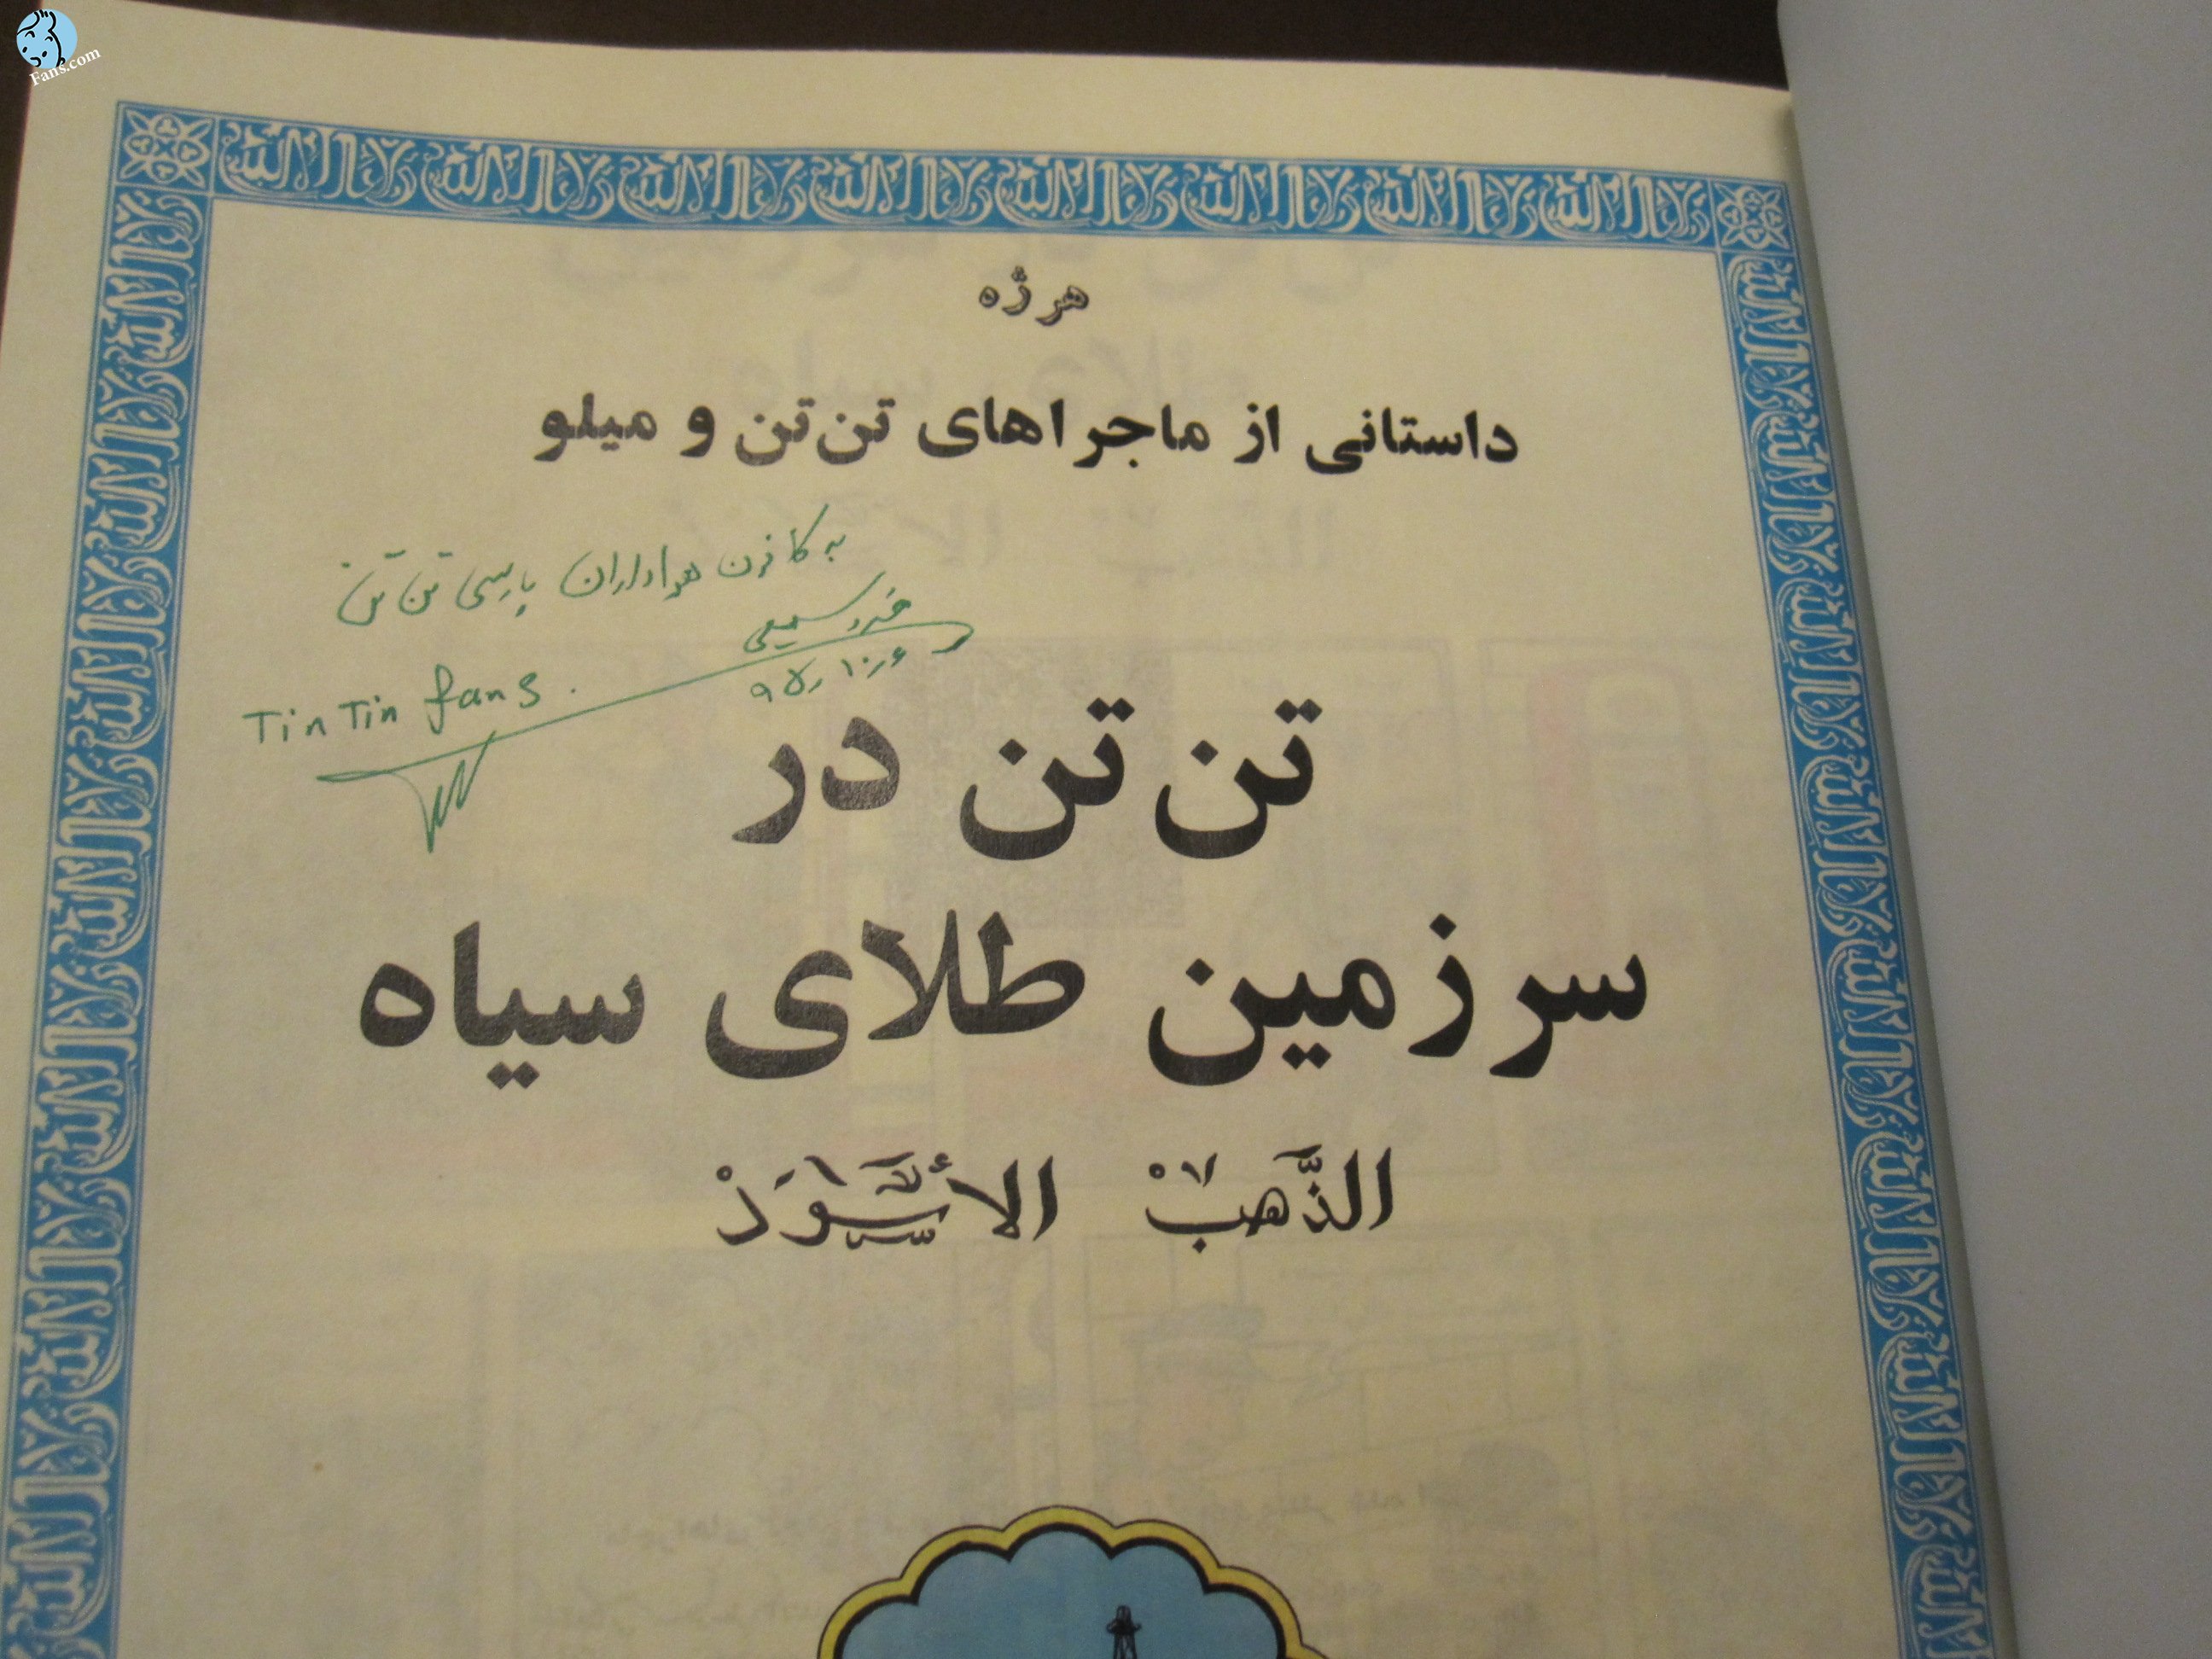 Fans.com
هرژه
داستانی از ماجراهای تن‌تن و میلو
به کانون هواداران پارسی تن تن
خسرو سمیعی
TinTin fans.
تن‌تن در
سرزمین طلای سیاه
الذَّهبْ الأسْوَدْ